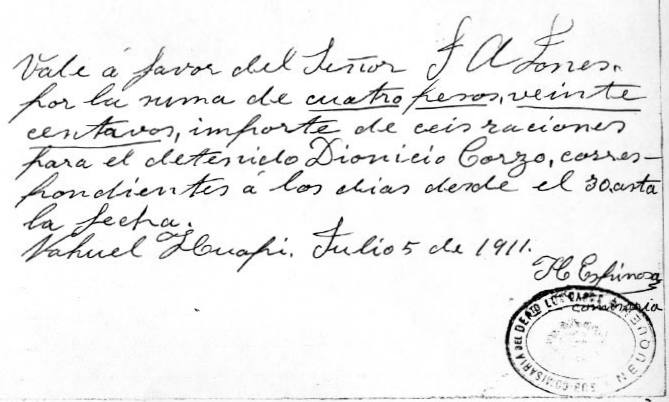 Vale á favor del Señor J A Jones.
por la suma de cuatro pesos, veinte
centavos, importe de ceis raciones
para el detenido Dionicio Corzo, corres-
pondientes á los dias desde el 30 asta
la fecha.
Nahuel Huapi. Julio 5 de 1911.
Espinosa
SUB-COMISARIA DEL DEPTO LOS NEUQUEN